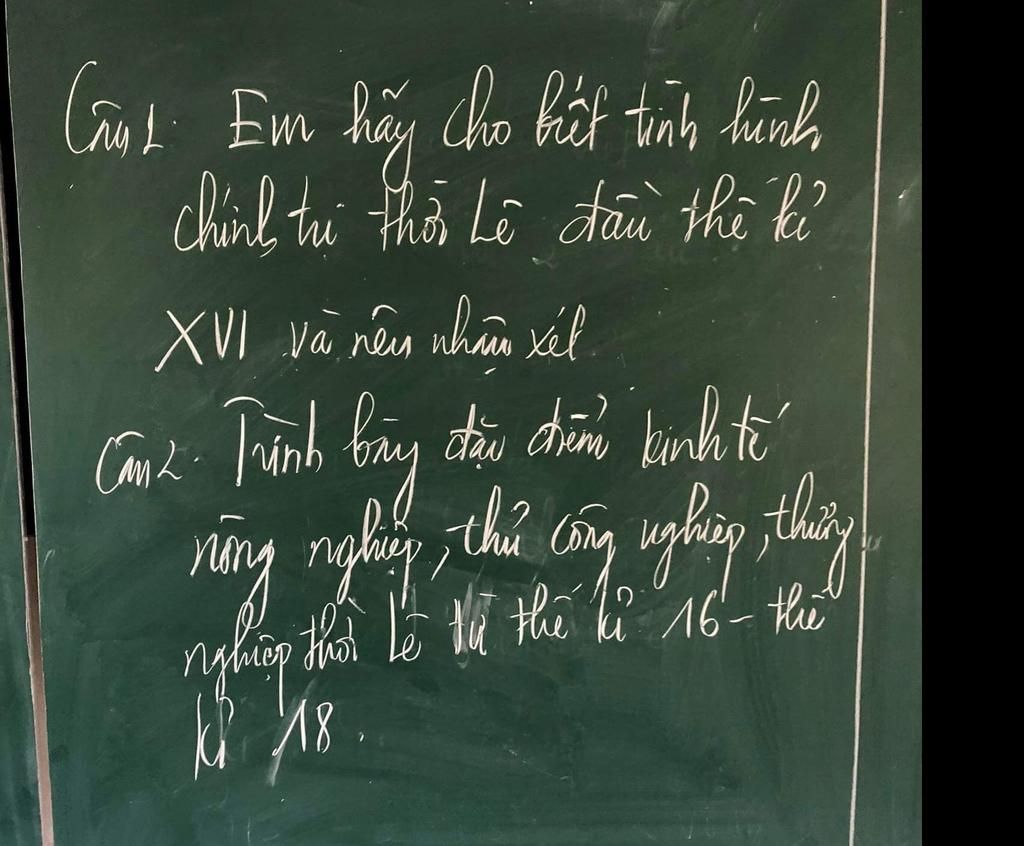 Câu 1. Em hãy cho biết tình hình
chính trị thời Lê đầu thế kỉ
XVI và nêu nhận xét
Câu 2. Trình bày đặc điểm kinh tế
nông nghiệp, thủ công nghiệp, thương
nghiệp thời Lê từ thế kỉ 16 - thế
kỉ 18.